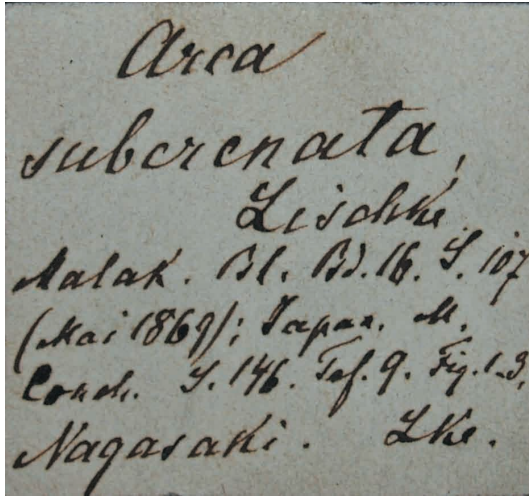 Arca
subcrenata,
Lischke.
Malak. Bl. Bd. 16. S. 107
(Mai 1869); Japan. M.
Conch. S. 146. Taf. 9. Fig. 1-3
Nagasaki. Lke.